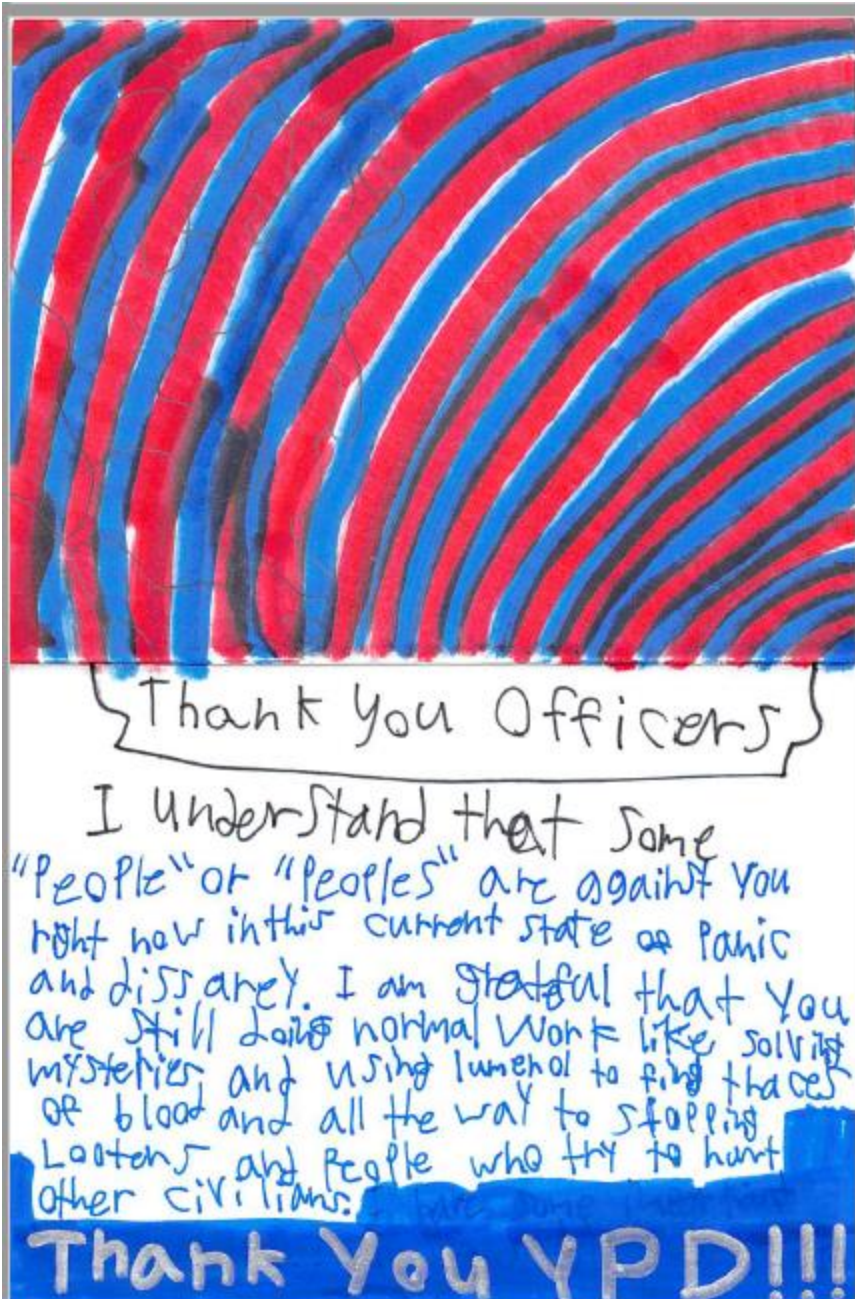 Thank You Officers
I understand that some
"People" or "Peoples" are against you
right now in this current state of Panic
and dissarey. I am grateful that you
are still doing normal work like solving
mysteries, and using lumenol to find traces
of blood and all the way to stopping
Looters and People who try to hurt
other civilians.
Thank You YPD!!!